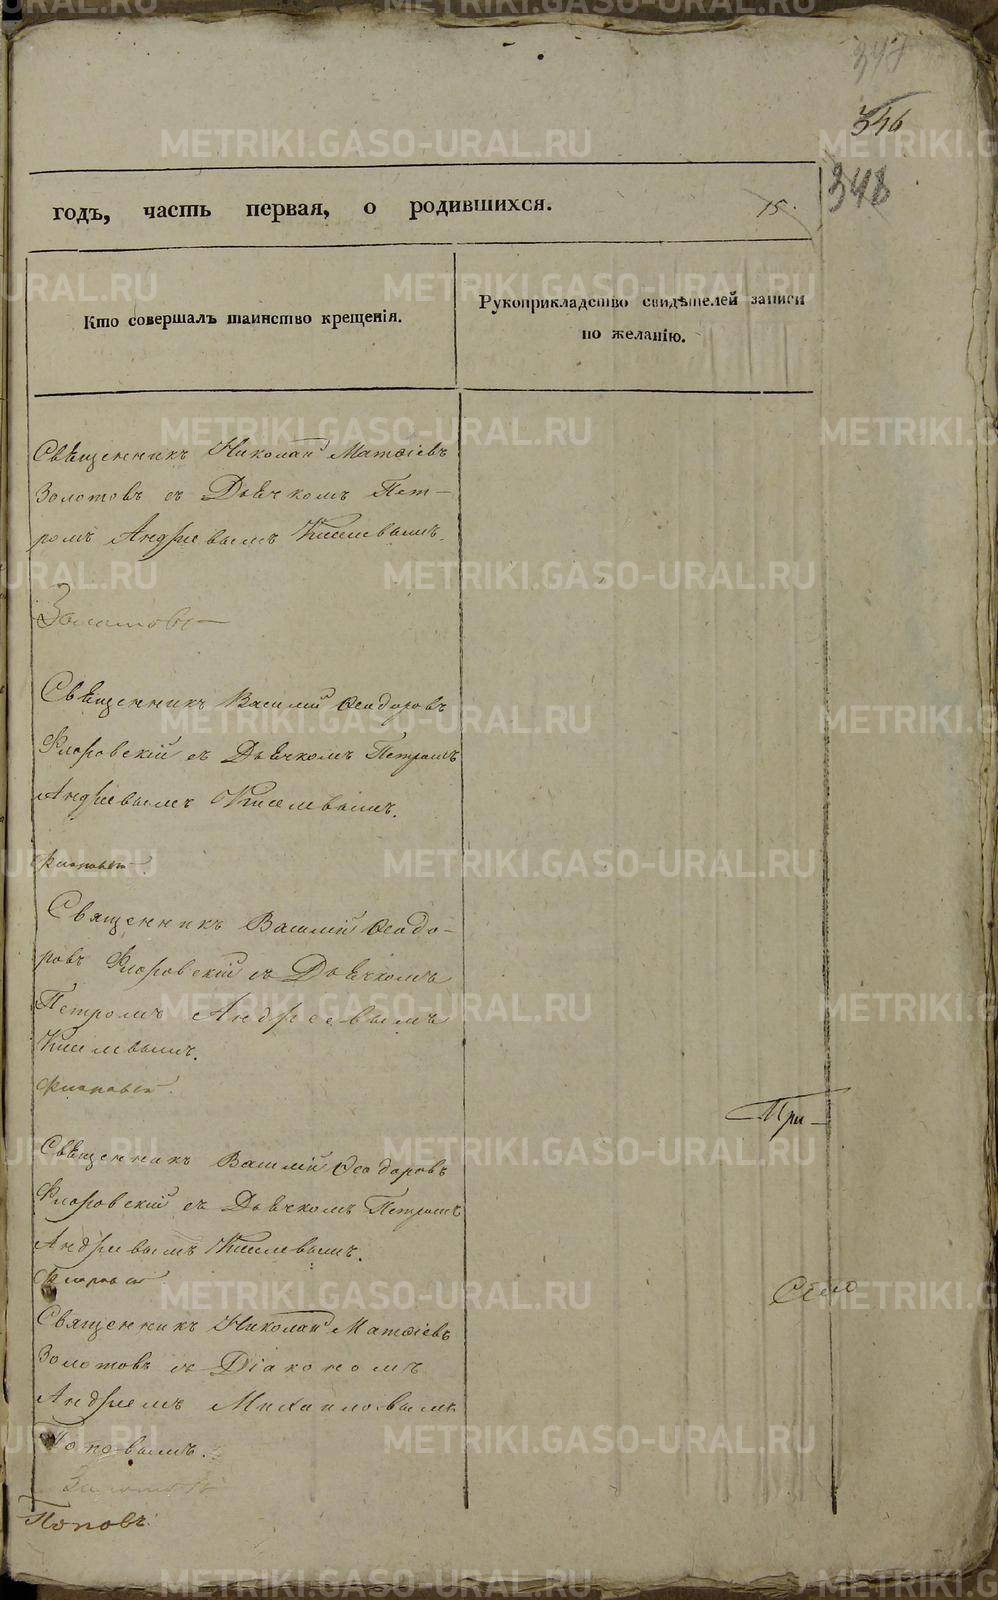 347
346
348
годъ, часть первая, о родившихся. 15.
Кто совершалъ таинство крещенія.
Рукоприкладство свидѣтелей записи
по желанію.
Свѣщенникъ Николай Матѳіевъ
Золотовъ съ Дьѣчкомъ Пет-
ромъ Андріевымъ Киселевымъ.
Золотовъ
Свѣщенникъ Василій Ѳеодоровъ
Флоровскій съ Дьѣчкомъ Петромъ
Андріевымъ Киселевымъ.
Священникъ Василій Ѳеодо-
ровъ Флоровскій съ Дьѣчкомъ
Петромъ Андреевымъ
Киселевымъ.
При-
Свѣщенникъ Василій Ѳеодоровъ
Флоровскій съ Дьѣчкомъ Петромъ
Андріевымъ Киселевымъ.
Священникъ Николай Матѳіевъ
Золотовъ съ Діакономъ
Андреемъ Михаиловымъ
Поповымъ.
Золотовъ
Поповъ.
METRIKI.GASO-URAL.RU